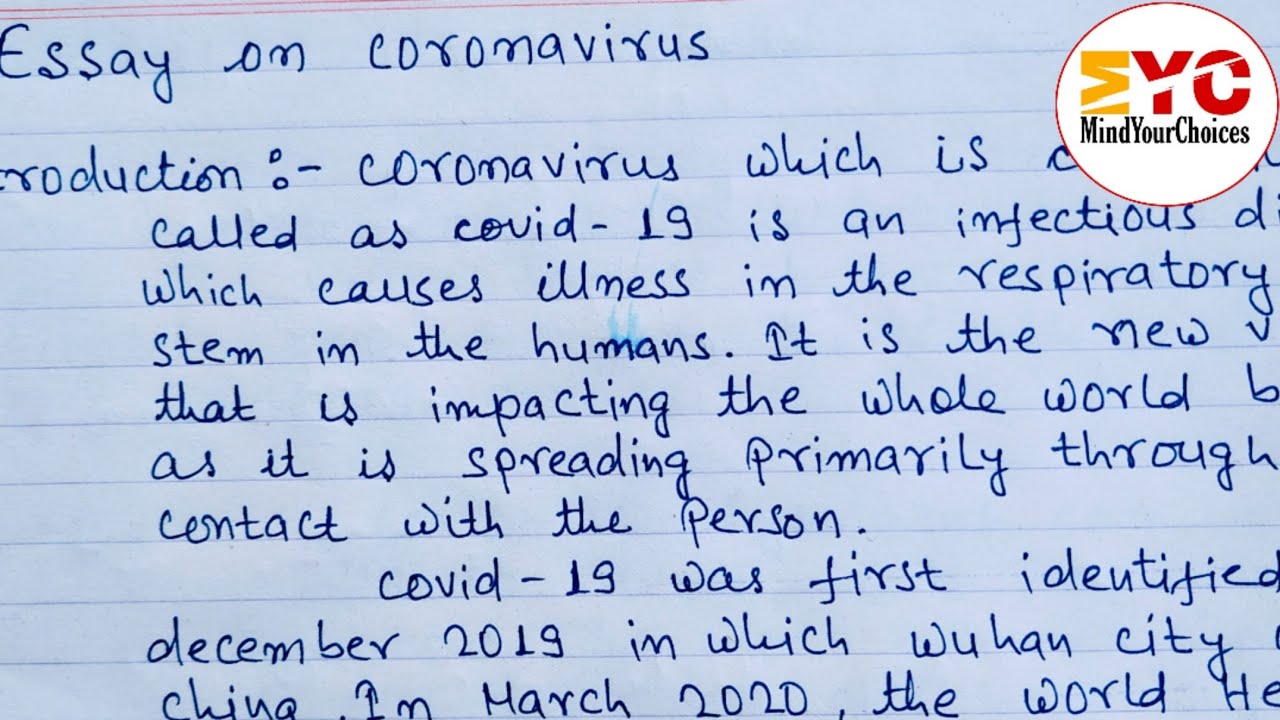 Essay on coronavirus
MYC
MindYourChoices
roduction :- coronavirus which is
called as covid-19 is an infectious di
which causes illness in the respiratory
stem in the humans. It is the new v
that is impacting the whole world b
as it is spreading primarily through
contact with the person.
covid-19 was first identified
december 2019 in which wuhan city
china. In March 2020, the world He